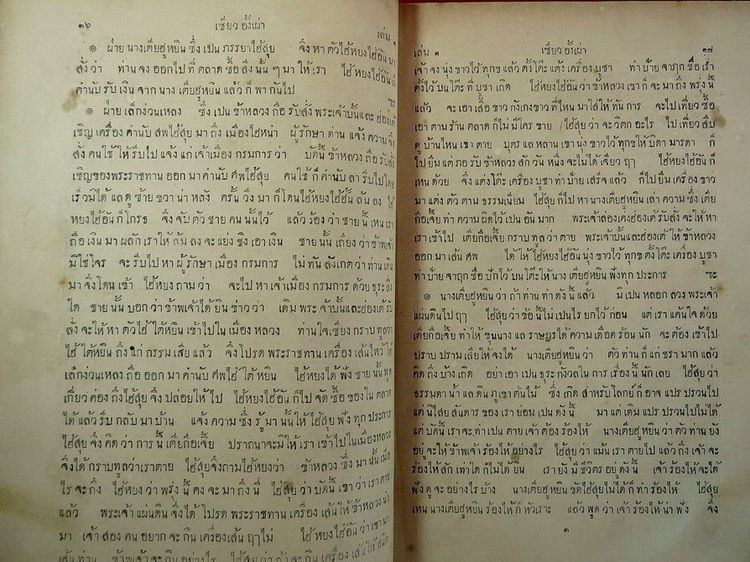 ๓๖ เซี่ยว อั้งเผ่า เล่ม ๑
๏ ฝ่าย นางเตียฮูหยิน ซึ่ง เปน ภรรยาไฮ้สุย จึ่ง หา ตัวไฮ้หยงไฮ้อัน มา
สั่ง ว่า ท่าน จง ออกไป ที่ ตลาด ซื้อ สิ่ง นั้น ๆ มา ให้ เรา ไฮ้หยงไฮ้อัน ก็
คำนับ รับ เงิน จาก นาง เตียฮูหยิน แล้ว ก็ พา กันไป
๏ ฝ่าย เล็กง่วนเหลง ซึ่ง เปน ข้าหลวง ถือ รับสั่ง พระเจ้าปั้นและ ฮ่องเต้
เชิญ เครื่อง คำนับ สพไฮ้สุย มา ถึง เมืองไฮ้หนำ ผู้ รักษา ด่าน แจ้ง ความ จึ่ง
สั่ง คนใช้ ให้ รีบไป แจ้ง แก่ เจ้าเมือง กรมการ ว่า บัดนี้ ข้าหลวง ถือ รับสั่ง
เชิญของพระราชทาน ออก มา คำนับ ศพไฮ้สุย คนใช้ ก็ คำนับ ลา รีบไป โดย
เร็ว มิได้ แล ดู ซ้าย ขวา น่า หลัง ครั้น วิ่ง มา ก็ โดนไฮ้หยงไฮ้อัน ล้ม ลง ไฮ้
หยงไฮ้อัน ก็ โกรธ จึ่ง จับ ตัว ชาย คน นั้นไว้ แล้ว ร้อง ว่า ชาย นี้ เหน เรา
ถือ เงิน มา ผลักเราให้ ล้ม ลง จะแย่ง ชิง เอา เงิน ชาย นั้น เถียง ว่า ข้าพเจ้า
มิใช่โจร จะ รีบไป หา ผู้ รักษา เมือง กรมการ ไม่ ทัน สังเกต ว่า ท่าน เดิน
มา จึ่ง โดน เข้า ไฮ้หยง ถาม ว่า จะไป หา เจ้าเมือง กรมการ ด้วย ธุระ สิ่ง
ใด ชาย นั้น บอก ว่า ข้าพเจ้าได้ ยิน ข่าว ว่า เดิม พระเจ้าปั้นและฮ่องเต้ รับ
สั่ง จะให้ หา ตัวไฮ้ใต้หยิน เข้าไป ใน เมือง หลวง ท่านใจเซียง กราบ ทูลว่า
ไฮ้ใต้หยิน ถึง แก่ กรรม เสีย แล้ว จึ่งโปรด พระราชทาน เครื่อง เส้นไหว้ ให้
เล็กง่วนเหลง ถือ ออก มา คำนับ ศพไฮ้ใต้หยิน ไฮ้หยงได้ ฟัง ชาย นั้น พูด
เกี่ยว ข้อง ถึงไฮ้สุย จึ่ง ปล่อยให้ไป ไฮ้หยงไฮ้อัน ก็ไป จัด ซื้อ ของใน ตลาด
ได้ แล้ว รีบ กลับ มา บ้าน แจ้ง ความ ซึ่ง รู้ มา นั้นให้ไฮ้สุย ฟัง ทุก ประการ
ไฮ้สุย จึ่ง คิด ว่า การ นี้ เตียก๊อเจี้ย ปราถนาจะมิให้ เรา เข้าไป ในเมืองหลวง
จึ่งได้ กราบทูลว่าเราตาย ไฮ้สุยจึ่งถามไฮ้หยงว่า ข้าหลวง ซึ่ง มา นั้น เมื่อ
ไร จะ ถึง ไฮ้หยง ว่า พรุ่ง นี้ คง จะ มา ถึง นี่ ไฮ้สุย ว่า บัดนี้ เขา ว่า เราตาย
แล้ว พระเจ้า แผ่นดิน จึ่ง ได้ โปรด พระราชทาน เครื่อง เส้นให้ ข้าหลวง นำ
มา เจ้า สอง คน อยาก จะ กิน เครื่องเส้น ฤๅไม่ ไฮ้หยงไฮ้อัน ว่า เขา มา
เส้น ท่าน ข้าพเจ้า จะ กิน อย่างไร ไฮ้สุย ว่า ถ้า จะ กิน เครื่อง เส้นให้ สนิท
เล่ม ๑ เซี่ยว อั้งเผ่า ๓๗
เจ้า จง นุ่ง ขาวไว้ ทุกข แล้ว ตั้งโต๊ะ แต่ง เครื่อง บูชา ทำ ป้าย จาฤก ชื่อ เรา
ตั้งไว้ บนโต๊ะ ที่ บูชา เกิด ไฮ้หยงไฮ้อันว่า ข้าหลวง เขา ก็ จะ มา ถึง พรุ่ง นี้
แล้ว จะ เอา เสื้อ ขาว กังเกงขาว ที่ไหน มาใส่ให้ ทัน การ จะไป เที่ยว ซื้อ
เอา ตาม ร้าน ตลาด ก็ไม่ มีใคร ขาย ไฮ้สุย ว่า จะ วิตก อะไร ไป เที่ยว สืบ
ดู บ้านไหน เขา ตาย บุตร แล หลาน เขา นุ่ง ขาวไว้ ทุกขให้ บิดา มารดา ก็
ไป ยืม แต่ พอ รับ ข้าหลวง สัก วัน หนึ่ง จะไม่ ได้ เจียว ฤๅ ไฮ้หยงไฮ้อัน ก็
เหน ด้วย จึ่ง แต่งโต๊ะ เครื่อง บูชา ทำ ป้าย เสร็จ แล้ว ก็ไป ยืม เครื่อง ขาว
มา แต่ง ตัว ตาม ธรรมเนียม ไฮ้สุย ก็ไป หา นางเตียฮูหยิน เล่า ความ ซึ่ง เตีย
ก๊อเจี้ย ทำ ความ ผิดไว้ เปน อัน มาก พระเจ้าฮ่องเต้ รับสั่ง จะให้ หา
เรา เข้าไป เตียก๊อเจี้ย กราบ ทูล ว่า ตาย พระเจ้าปั้นและฮ่องเต้ให้ ข้าหลวง
ออก มา เส้น ศพ ได้ให้ ไฮ้หยงไฮ้อัน นุ่ง ขาวไว้ ทุกข ตั้งโต๊ะ เครื่อง บูชา
ทำ ป้าย จาฤก ชื่อ ปักไว้ บนโต๊ะให้ นาง เตียฮูหยิน ฟัง ทุก ประการ ฯะ
๏ นางเตียฮูหยิน ว่า ถ้า ท่าน ทำ ดัง นี้ แล้ว มิ เปน หลอก ลวง พระเจ้า
แผ่นดินไป ฤๅ ไฮ้สุย ว่า ข้อ นี้ไม่ เปนไร ยกไว้ ก่อน แต่ เรา แค้นใจ ด้วย
เตียก๊อเจี้ย ทำให้ ขุนนาง แล ราษฎรได้ ความ เดือด ร้อน นัก จะ ต้อง เข้าไป
ปราบ ปราม เสียให้ จงได้ นางเตียฮูหยิน ว่า ตัว ท่าน ก็ แก่ ชรา มาก แล้ว
คิด ถึง บ้าง เกิด อย่า เอา เปน ธุระ กังวลใน การ เรื่อง นี้ นัก เลย ไฮ้สุย ว่า
ธรรมดา น้ำ แล ดิน ภูเขา ต้นไม้ ซึ่ง เกิด สำหรับโลกย์ ก็ อาจ แปร ปรวนไป
แต่ นิไสย สันดาร ของ เรา ยอม เปน ดัง นี้ มา แต่ เดิม แปร ปรวนไปไม่ได้
แต่ บัดนี้ เรา จะ ทำ เปน ตาย เจ้า ต้อง ร้องให้ นางเตียฮูหยิน ว่า ตัว ท่าน ยัง
อยู่ จะให้ ข้าพเจ้า ร้องให้ อย่างไร ไฮ้สุย ว่า แม้น เรา ตายไป แล้ว ถึง เจ้า จะ
ร้องให้ สัก เท่าใด ก็ไม่ได้ ยิน เรา ยัง มี ชีวิตร อยู่ ดัง นี้ เจ้า ร้องให้ จะได้
ฟัง ดู จะ อย่างไร บ้าง นางเตียฮูหยิน ขัดไฮ้สุยไม่ได้ ก็ ทำ ร้องให้ ไฮ้สุย
เหน นางเตียฮูหยิน ร้องให้ ก็ หัวเราะ แล้ว พูด ว่า เจ้า ร้องให้ น่า ฟัง จึ่ง
๓